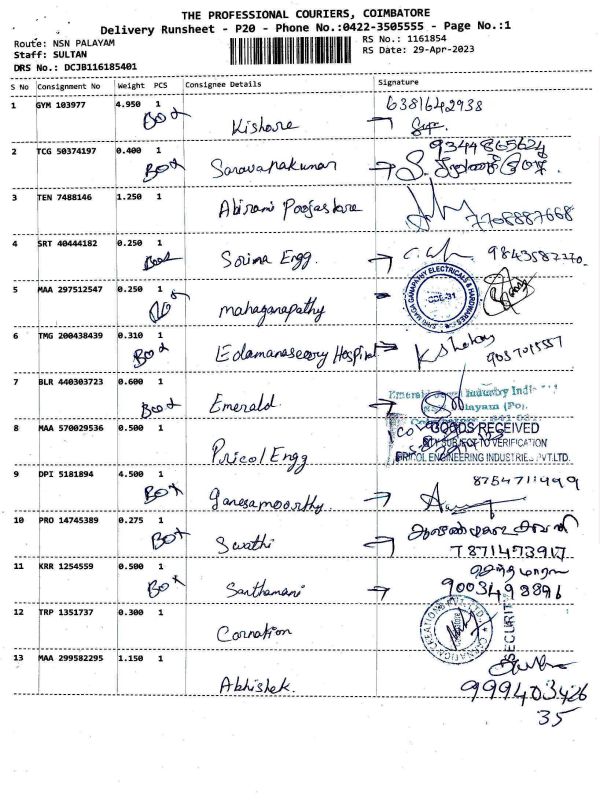 THE PROFESSIONAL COURIERS, COIMBATORE
Delivery Runsheet - P20 - Phone No.:0422-3505555 - Page No.:1
Route: NSN PALAYAM
RS No.: 1161854
Staff: SULTAN
RS Date: 29-Apr-2023
DRS No.: DCJB116185401
S No Consignment No Weight PCS Consignee Details Signature
1 GYM 103977 4.950 1
Box Kishore 6381642938
2 TCG 50374197 0.400 1
Box Saravanakumar 9344865624
3 TEN 7488146 1.250 1
Abirami Poojastore 7708887668
4 SRT 40444182 0.250 1
Box Sorima Engg. 9843582270
5 MAA 297512547 0.250 1
mahaganapathy
SHRI MAGA GANAPATHY ELECTRICALS & HARDWARES
CBE-31
6 TMG 200438439 0.310 1
Box Edamanaseeory Hospital
7 BLR 440303723 0.600 1
Box Emerald
Emerald Jewel Industry Indi
8 MAA 570029536 0.500 1
Pricol Engg
GOODS RECEIVED
QTY SUBJECT TO VERIFICATION
PRICOL ENGINEERING INDUSTRIES PVT.LTD.
9 DPI 5181894 4.500 1
Box Ganesamoorthy 8754711999
10 PRO 14745389 0.275 1
Box Swathi
7871473917
11 KRR 1254559 0.500 1
Box Santhamani
9003498896
12 TRP 1351737 0.300 1
Carnation
CARNATION CREATIONS PVT. LTD.
SECURITY
13 MAA 299582295 1.150 1
Abhishek.
999403426
35